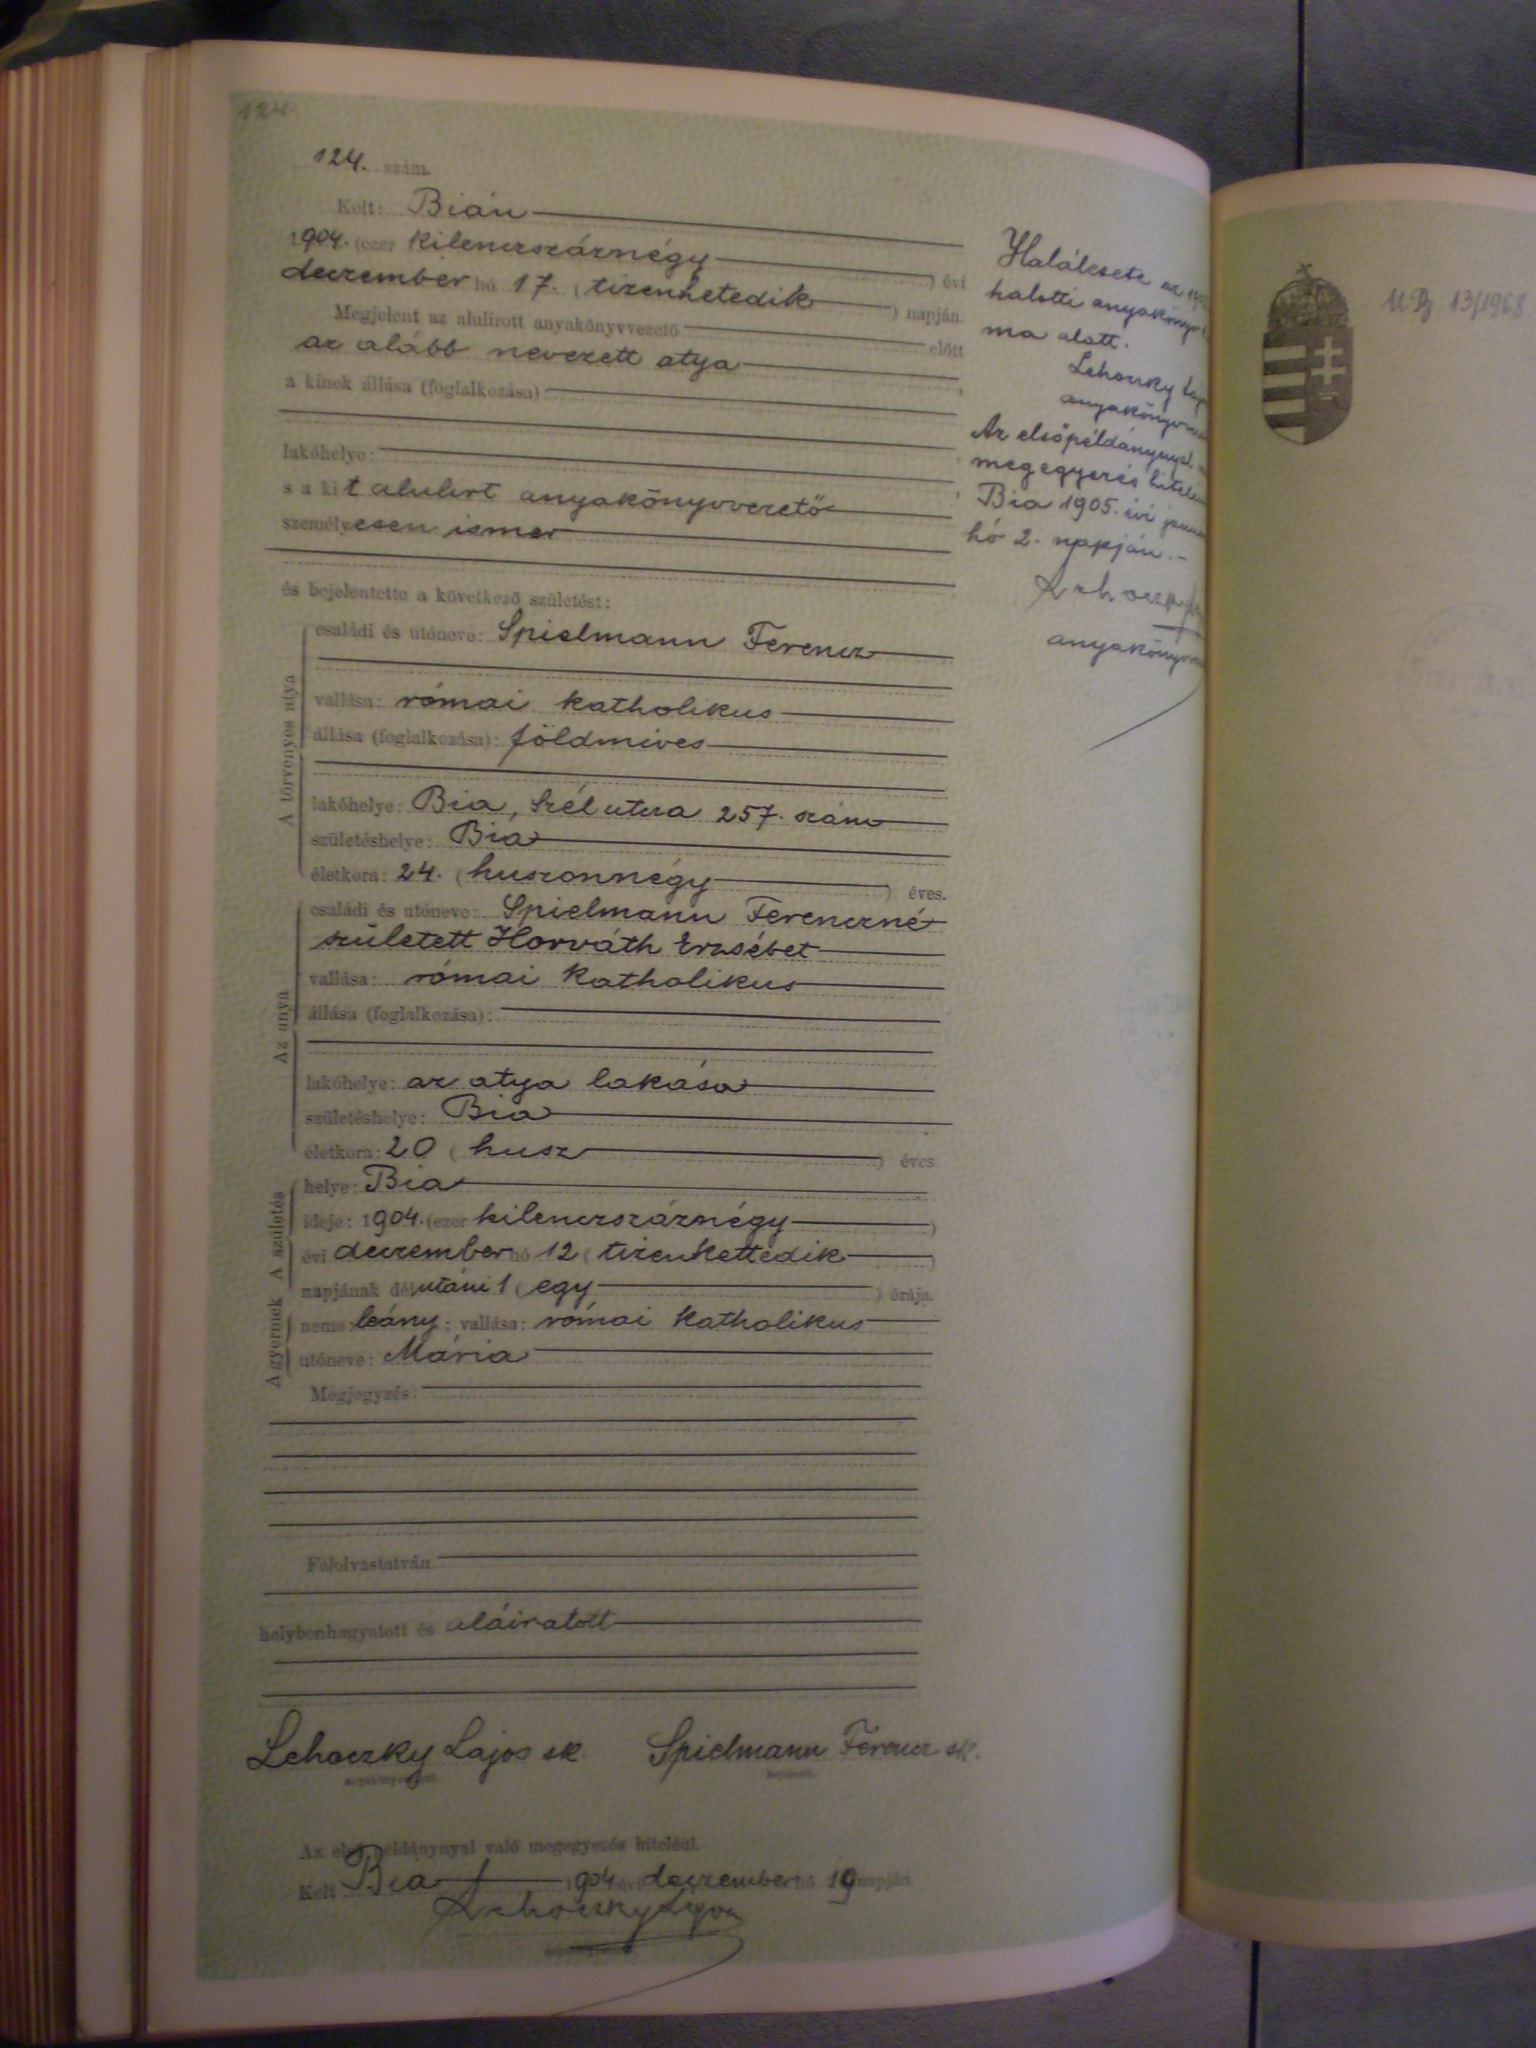 124
124. szám.
Kelt: Bián
1904. (ezer kilenczszáznégy) évi
deczember hó 17. (tizenhetedik) napján.
Megjelent az alulirott anyakönyvvezető előtt
az alább nevezett atya
a kinek állása (foglalkozása):
lakóhelye:
s a kit alulirt anyakönyvvezető
személyesen ismer
és bejelentette a következő születést:
A törvényes atya
családi és utóneve: Spielmann Ferencz
vallása: római katholikus
állása (foglalkozása): földmives
lakóhelye: Bia, Szél utcza 257. szám
születéshelye: Bia
életkora: 24. (huszonnégy) éves.
Az anya
családi és utóneve: Spielmann Ferenczné
született Horváth Erzsébet
vallása: római katholikus
állása (foglalkozása):
lakóhelye: az atya lakása
születéshelye: Bia
életkora: 20 (husz) éves
A születés
helye: Bia
ideje: 1904. (ezer kilenczszáznégy)
évi deczember hó 12 (tizenkettedik)
napjának délutáni 1 (egy) órája.
A gyermek
neme: leány; vallása: római katholikus
utóneve: Mária
Megjegyzés:
Felolvastatván
helybenhagyatott és aláiratott
Lehoczky Lajos sk. Spielmann Ferencz sk.
anyakönyvvezető. bejelentő.
Az első példánynyal való megegyezés hiteléül.
Kelt Bia 1904 évi deczember hó 19 napján
Lehoczky Lajos
Halálesete az
halotti anyakönyv
ma alatt.
Lehoczky
Az elsőpéldánynyal
megegyezés
Bia 1905. évi
hó 2. napján.-
Lehoczky
13/1968